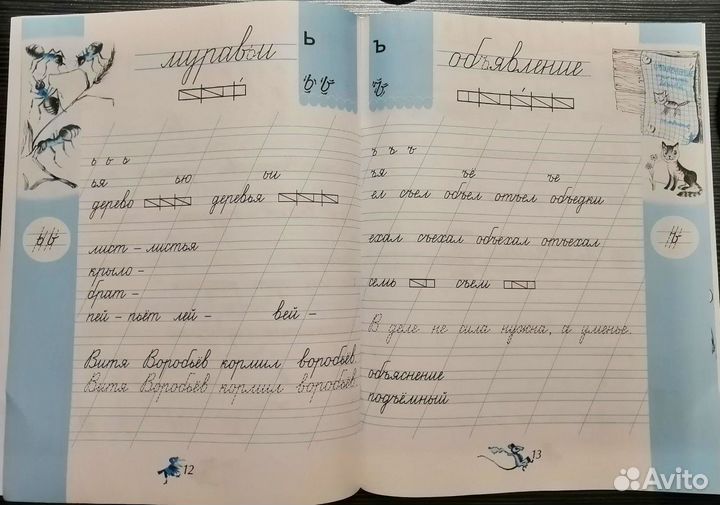 муравьи
ь
ь ь ь
ья ью ьи
дерево деревья
лист – листья
крыло –
брат –
пей – пьёт лей – вей –
Витя Воробьёв кормил воробьёв.
Витя Воробьёв кормил воробьёв.
12
ъ
объявление
ъ ъ ъ
ъя ъё ъе
ел съел объел отъел объедки
ехал съехал объехал отъехал
семь съем
В деле не сила нужна, а уменье.
объяснение
подъёмный
13
Avito